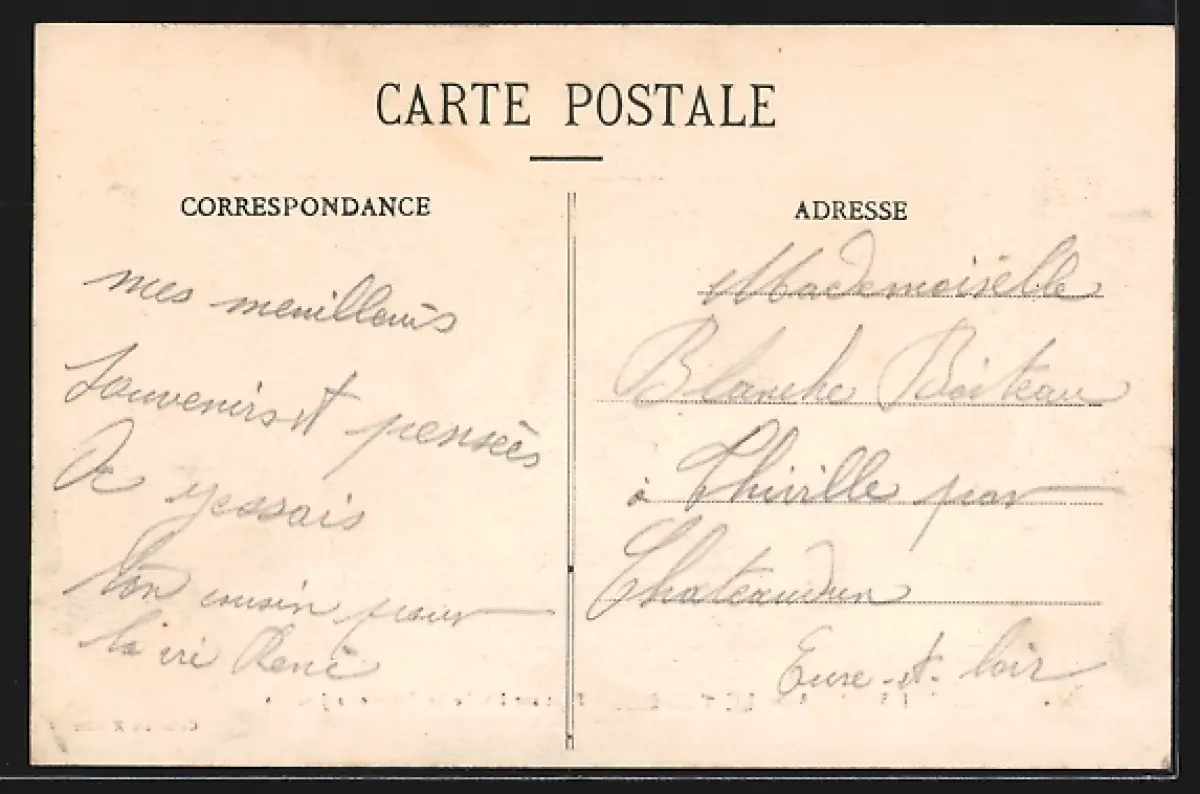 CARTE POSTALE
CORRESPONDANCE
mes meuilleurs
souvenirs et pensées
De yessais
ton cousin pour
la vie René
ADRESSE
Mademoiselle
Blanche Boiteau
à Thiville par
Chateaudun
Eure-et-loir